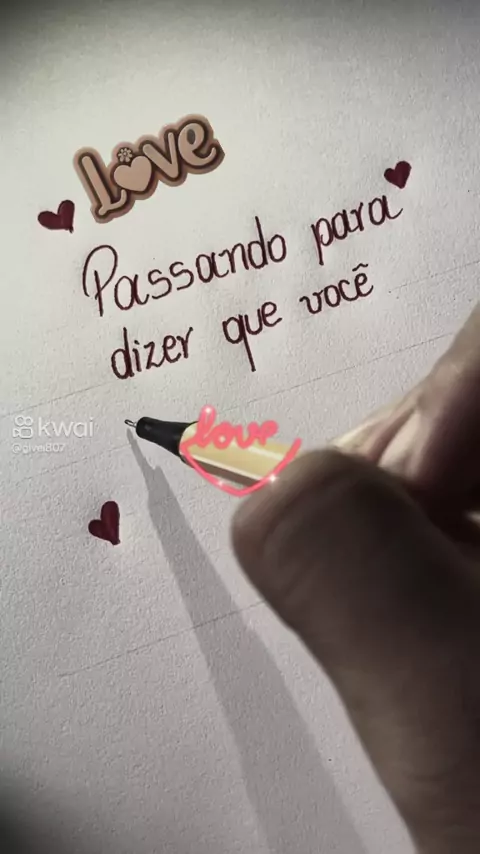 Love
Passando para
dizer que você
kwai
love